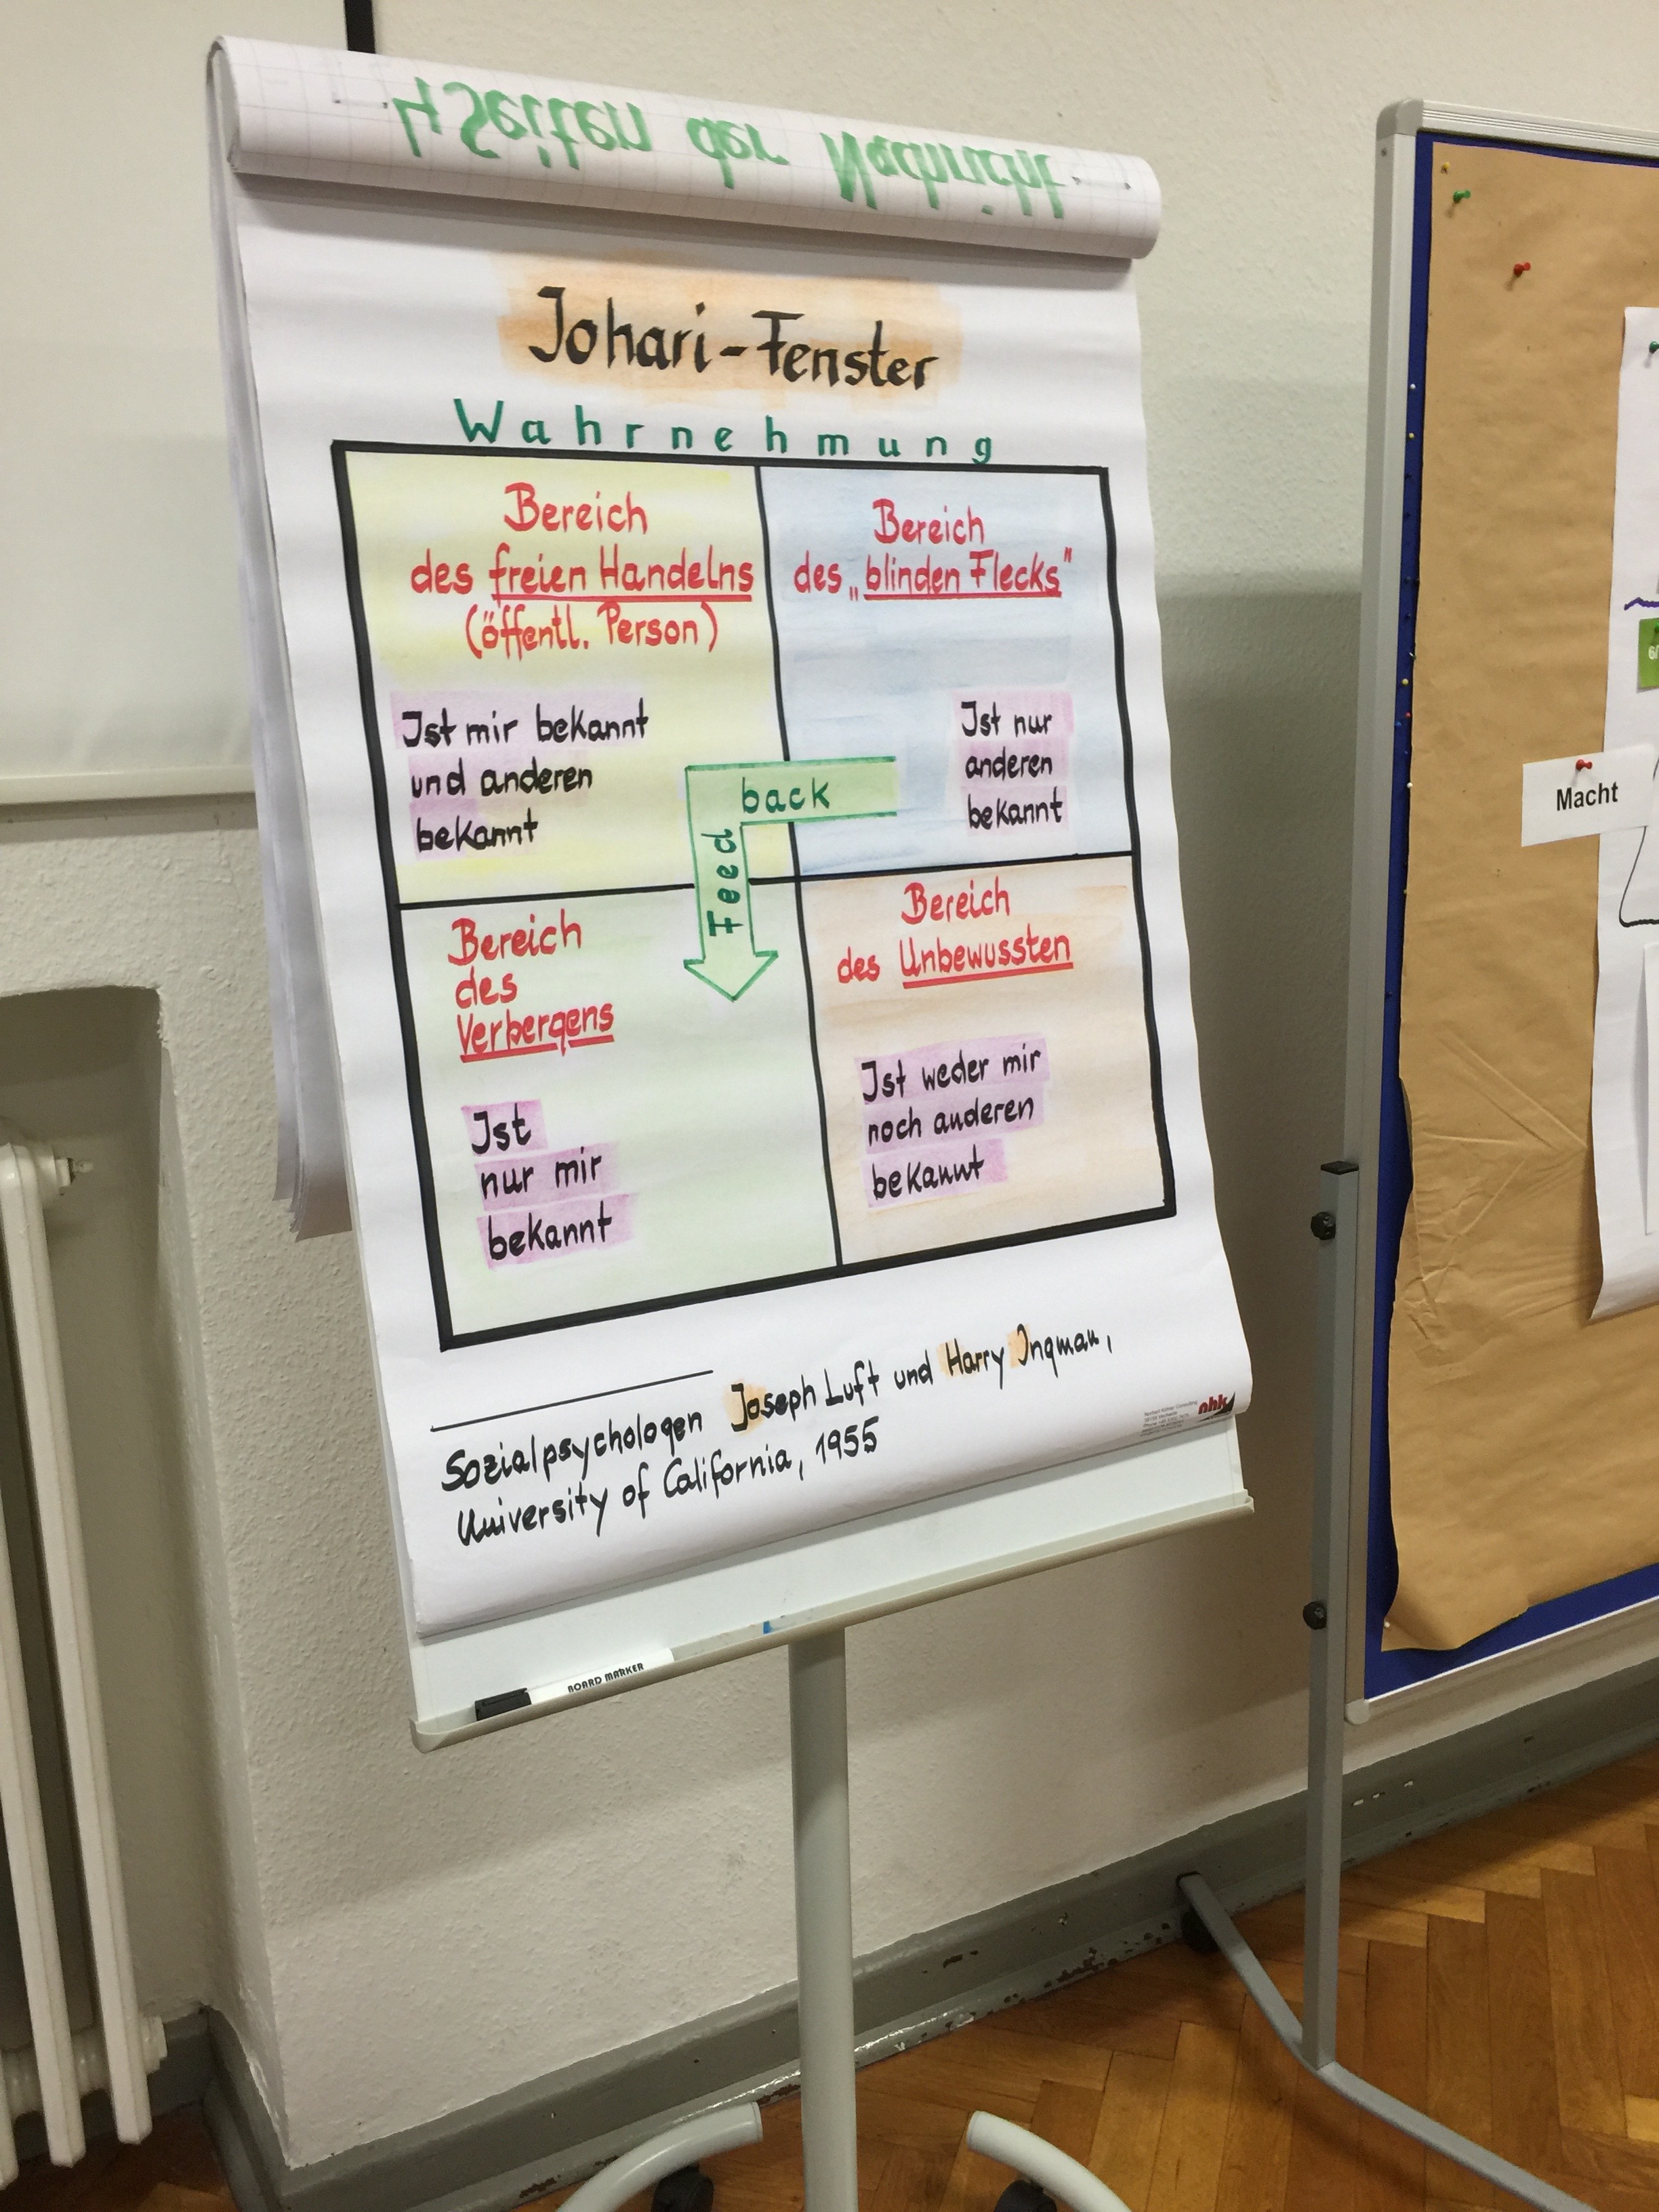 4 Seiten der Nachricht
Johari-Fenster
Wahrnehmung
Bereich
des freien Handelns
(öffentl. Person)
Ist mir bekannt
und anderen
bekannt
Bereich
des „blinden Flecks"
Ist nur
anderen
bekannt
back
Feed
Bereich
des
Verbergens
Ist
nur mir
bekannt
Bereich
des Unbewussten
Ist weder mir
noch anderen
bekannt
Sozialpsychologen Joseph Luft und Harry Ingman,
University of California, 1955
nhk
BOARD MARKER
Macht
6/